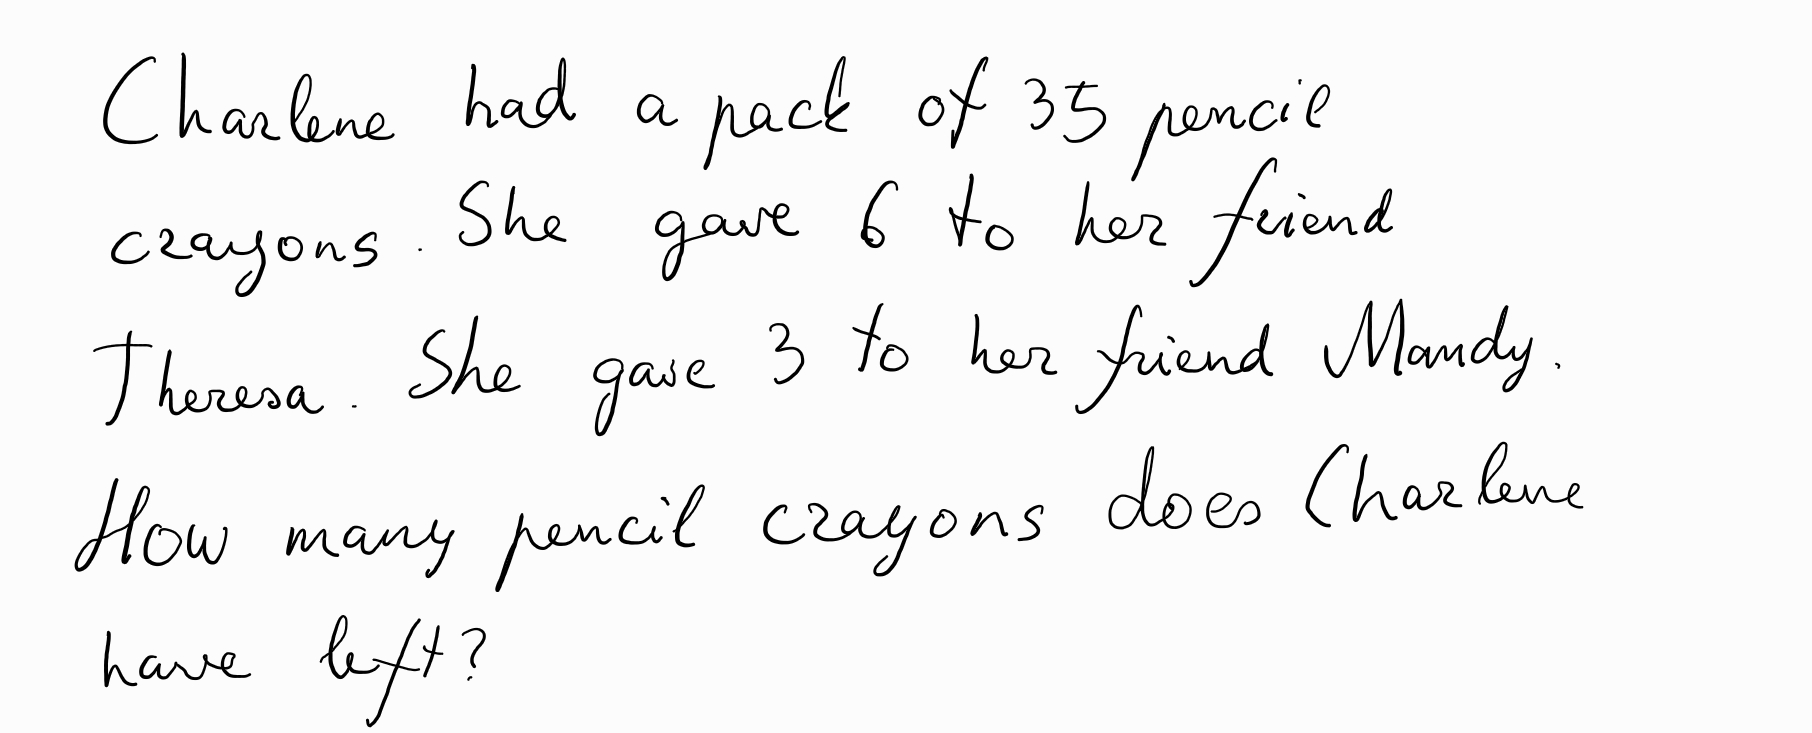 Charlene had a pack of 35 pencil
crayons. She gave 6 to her friend
Theresa. She gave 3 to her friend Mandy.
How many pencil crayons does Charlene
have left?